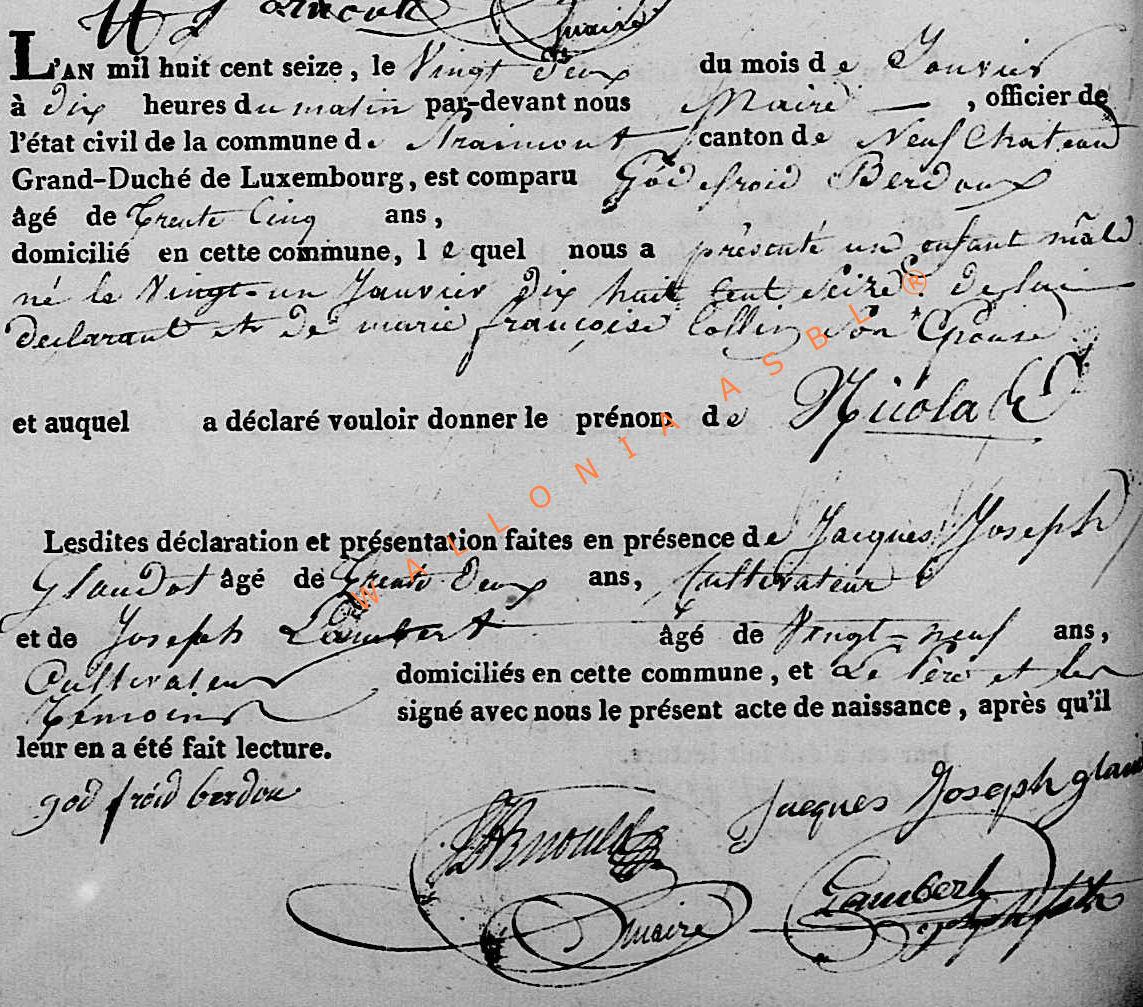 Arnould
maire
L'AN mil huit cent seize, le Vingt deux du mois de Janvier
à dix heures du matin par-devant nous Maire — , officier de
l'état civil de la commune de Straimont canton de Neufchateau
Grand-Duché de Luxembourg, est comparu Godefroid Berdoux
âgé de trente Cinq ans,
domicilié en cette commune, le quel nous a présenté un enfant mâle
né le Vingt-un Janvier dix huit Cent Seize. de lui
declarant et de marie françoise Collin son Epouse
et auquel a déclaré vouloir donner le prénom de Nicolas
Lesdites déclaration et présentation faites en présence de Jacques Joseph
Glaudot âgé de trente deux ans, Cultivateur
et de Joseph Lambert âgé de Vingt-neuf ans,
Cultivateur domiciliés en cette commune, et Le Pere et les
témoins signé avec nous le présent acte de naissance, après qu'il
leur en a été fait lecture.
god froid berdou
Jacques Joseph glau
Arnould
maire
Lambert
joseph
WALLONIA ASBL ®